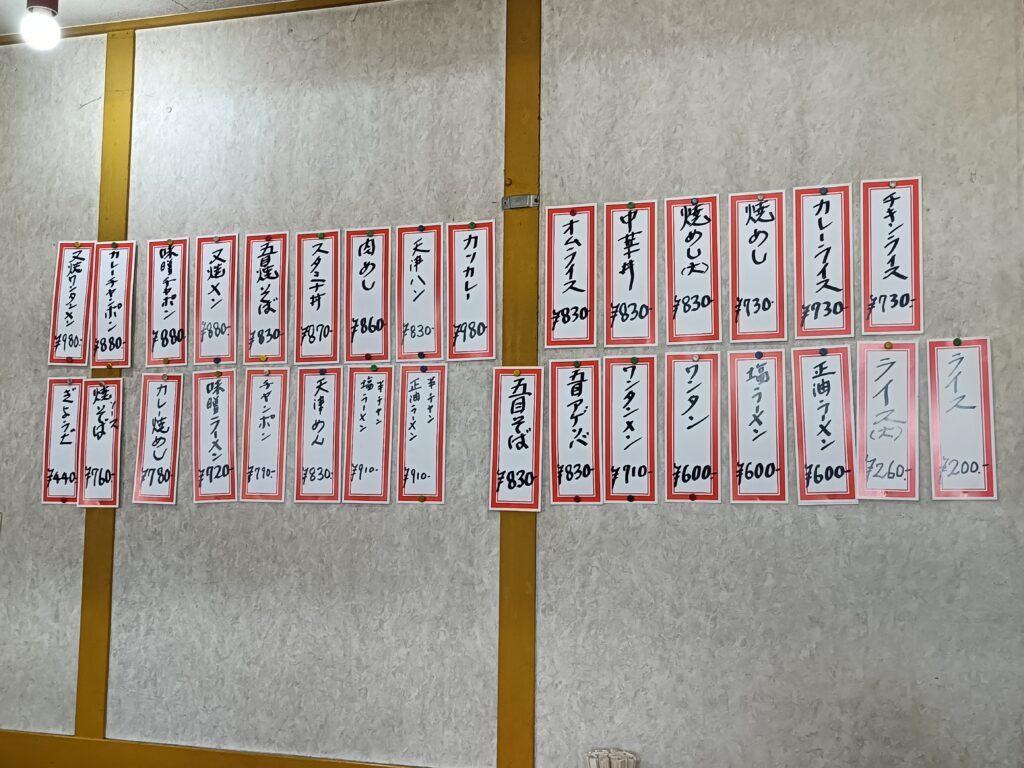 チキンライス
¥730-
カレーライス
¥930-
焼めし
¥730-
焼めし(大)
¥830-
中華丼
¥830-
オムライス
¥830-
カツカレー
¥980-
天津ハン
¥830-
肉めし
¥860
スタミナ丼
¥870-
五目焼そば
¥830-
叉焼メン
¥880-
味噌チャンポン
¥880-
カレーチャンポン
¥880-
叉焼ワンタンメン
¥980-
ライス
¥200.-
ライス(大)
¥260-
正油ラーメン
¥600-
塩ラーメン
¥600-
ワンタン
¥600-
ワンタンメン
¥910-
五目アゲソバ
¥830-
五目そば
¥830-
半チャン
正油ラーメン
¥910-
半チャン
塩ラーメン
¥910-
天津めん
¥830-
チャンポン
¥790-
味噌ラーメン
¥920-
カレー焼めし
¥780-
ソース
焼そば
¥760-
ぎょうざ
¥440-